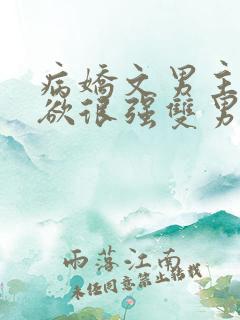 病嬌文男主
欲很强雙男
雨落江南
未经同意禁止转载